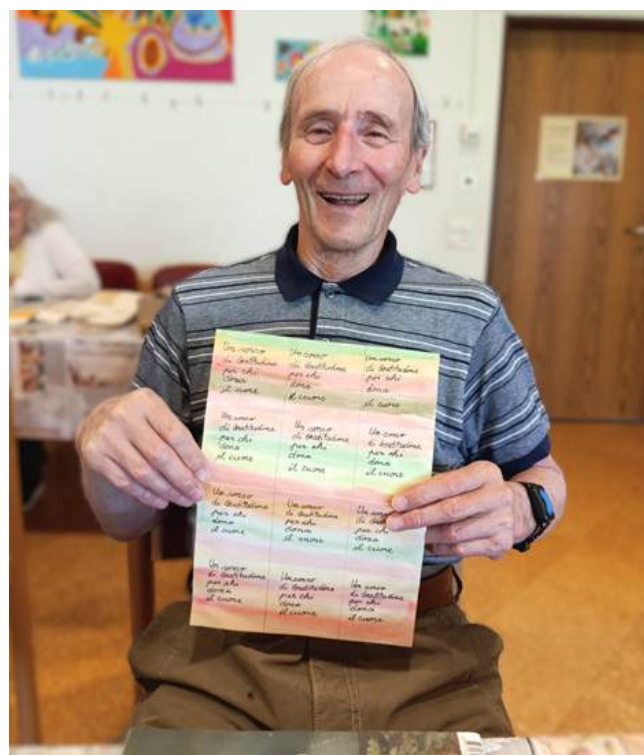 Un
di Gratitudine
per chi
dona
il cuore
Un
di Gratitudine
per chi
dona
il cuore
Un
di Gratitudine
per chi
dona
il cuore
Un
di Gratitudine
per chi
dona
il cuore
Un
di Gratitudine
per chi
dona
il cuore
Un
di Gratitudine
per chi
dona
il cuore
Un
di Gratitudine
per chi
dona
il cuore
Un
di Gratitudine
per chi
dona
il cuore
Un
di
per chi
dona
il cuore
Un
di Gratitudine
per chi
dona
il cuore
Un
di Gratitudine
per chi
dona
il cuore
Un
di Gratitudine
per chi
dona
il cuore